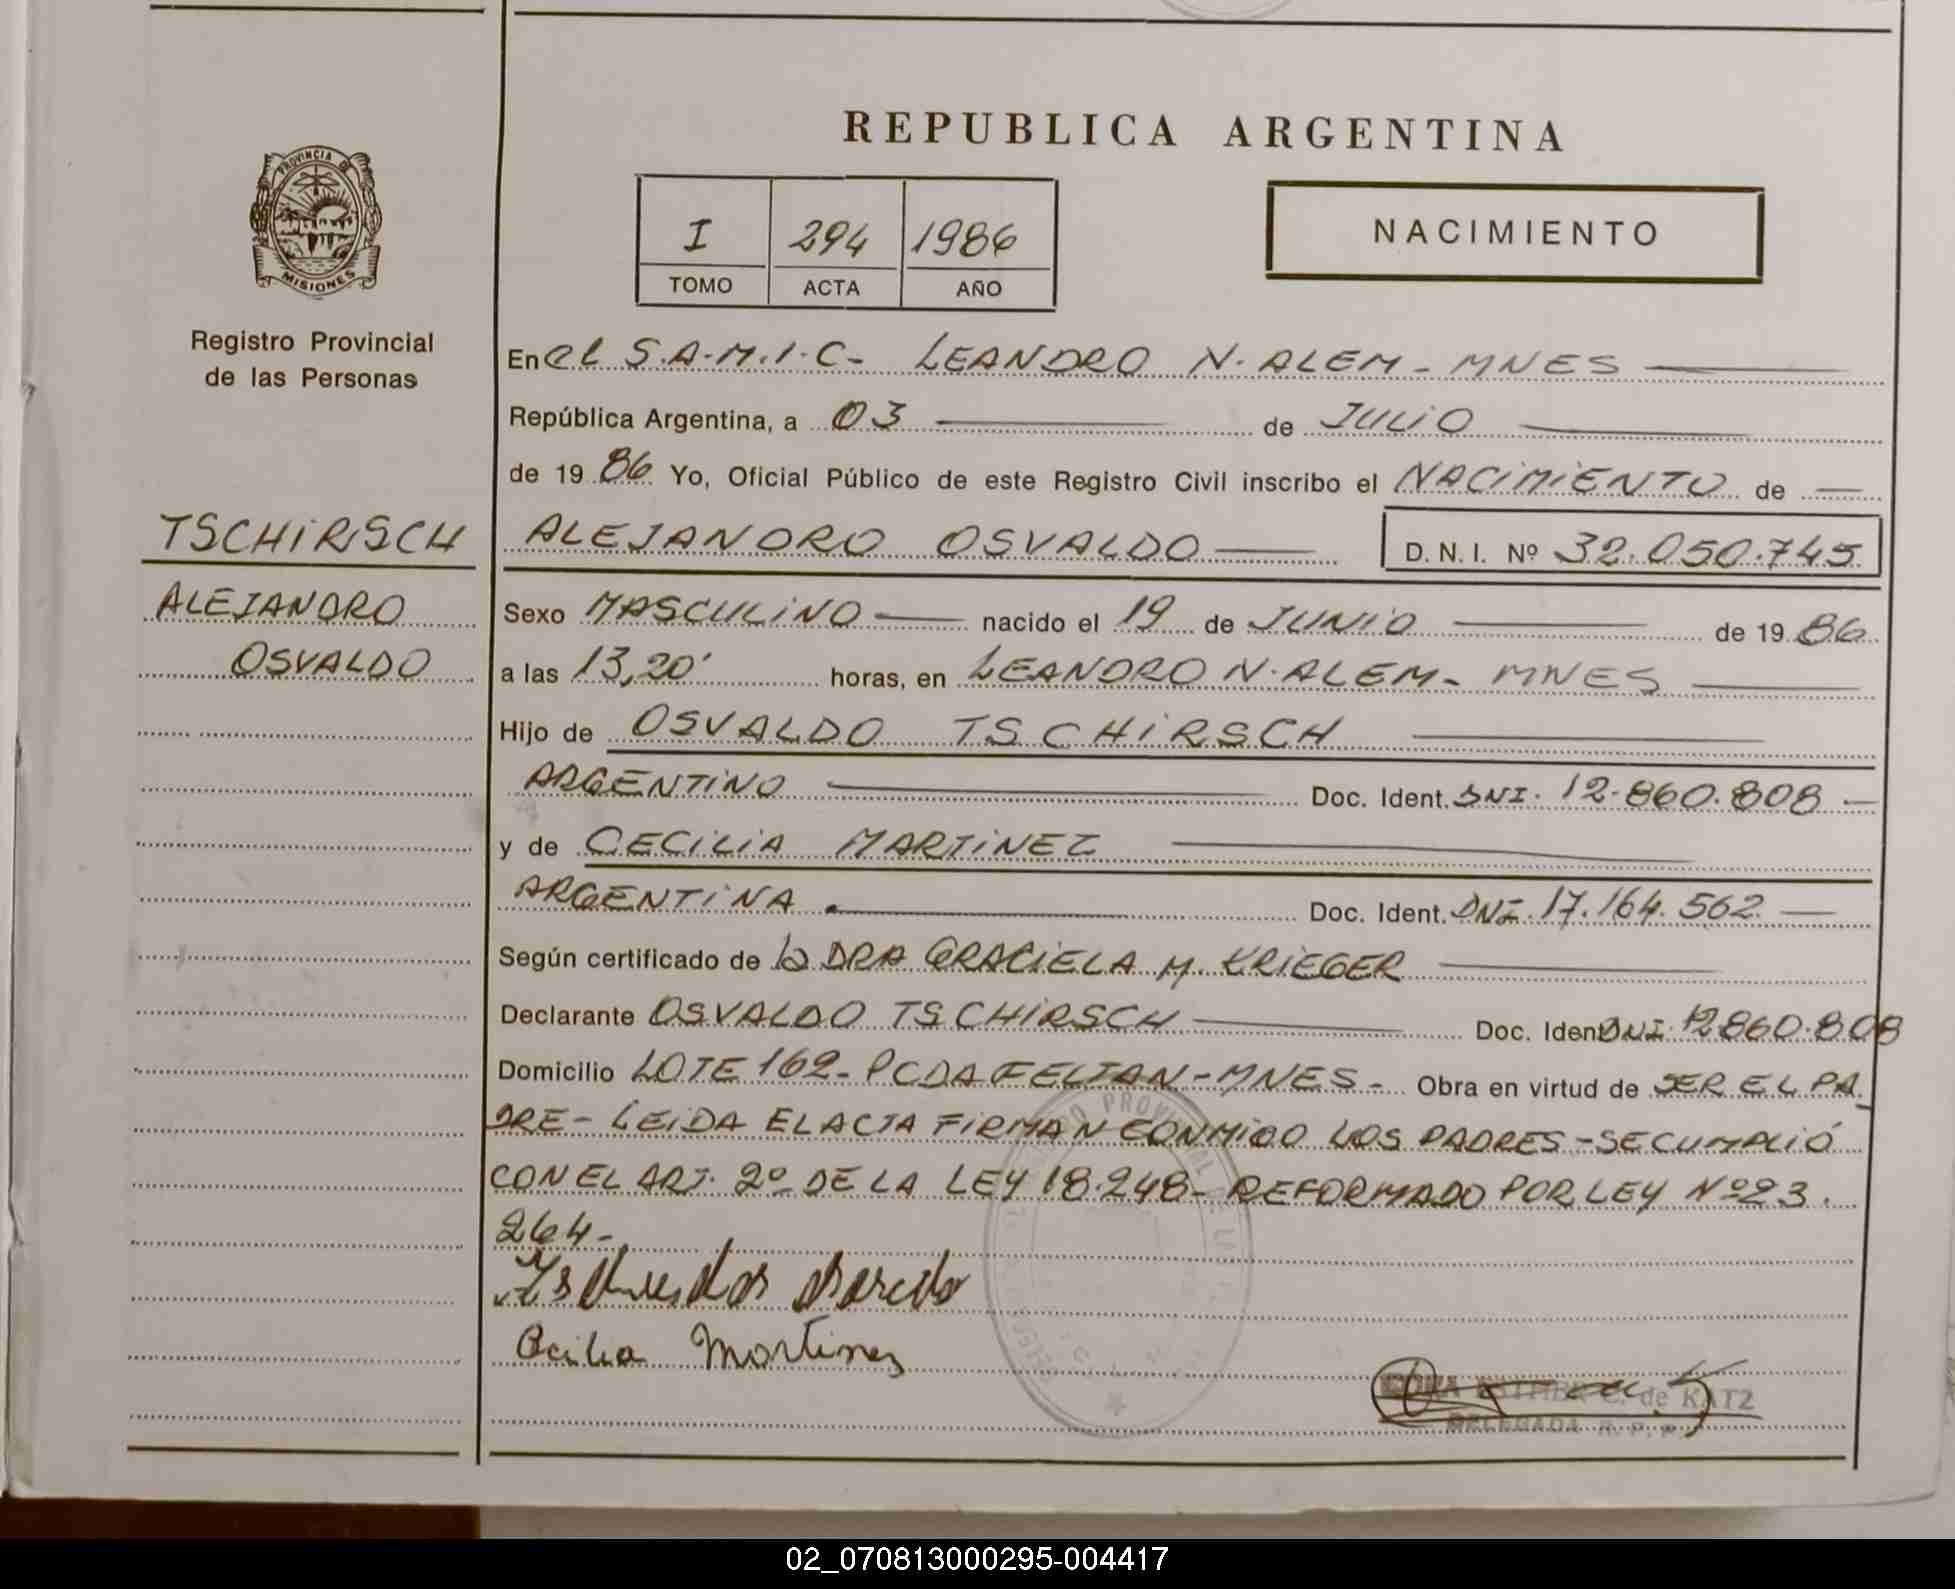 REPUBLICA ARGENTINA
PROVINCIA DE
MISIONES
Registro Provincial
de las Personas
I 294 1986
TOMO ACTA AÑO
NACIMIENTO
En el S.A.M.I.C- LEANDRO N. ALEM - MNES
República Argentina, a 03 de JULIO
de 1986 Yo, Oficial Público de este Registro Civil inscribo el NACIMIENTO de
TSCHIRSCH
ALEJANDRO
OSVALDO
ALEJANDRO OSVALDO D. N. I. Nº 32.050.745
Sexo MASCULINO nacido el 19 de JUNIO de 1986
a las 13,20' horas, en LEANDRO N. ALEM - MNES
Hijo de OSVALDO TSCHIRSCH
ARGENTINO Doc. Ident. DNI. 12.860.808
y de CECILIA MARTINEZ
ARGENTINA. Doc. Ident. DNI. 17.164.562
Según certificado de la DRA GRACIELA M. KRIEGER
Declarante OSVALDO TSCHIRSCH Doc. Ident DNI. 12860.808
Domicilio LOTE 162- PCDA FELTAN - MNES - Obra en virtud de SER EL PA
DRE - LEIDA EL ACTA FIRMAN CONMIGO LOS PADRES - SE CUMPLIÓ
CON EL ART. 2º DE LA LEY 18.248 - REFORMADO POR LEY Nº 23.
264-
Cecilia Martinez
REGISTRO PROVINCIAL DE
C. de KATZ
DELEGADA R. P. P.
02_070813000295-004417